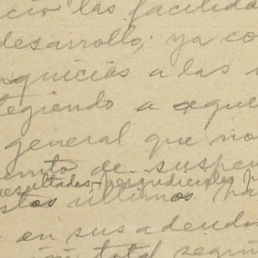 cio las facilida
desarrollo, ya co
nquicias a las
tegiendo a aque
general que no
ento de suspen
resultados perjudiciales p
stos últimos ha
en sus adeudo
total segú